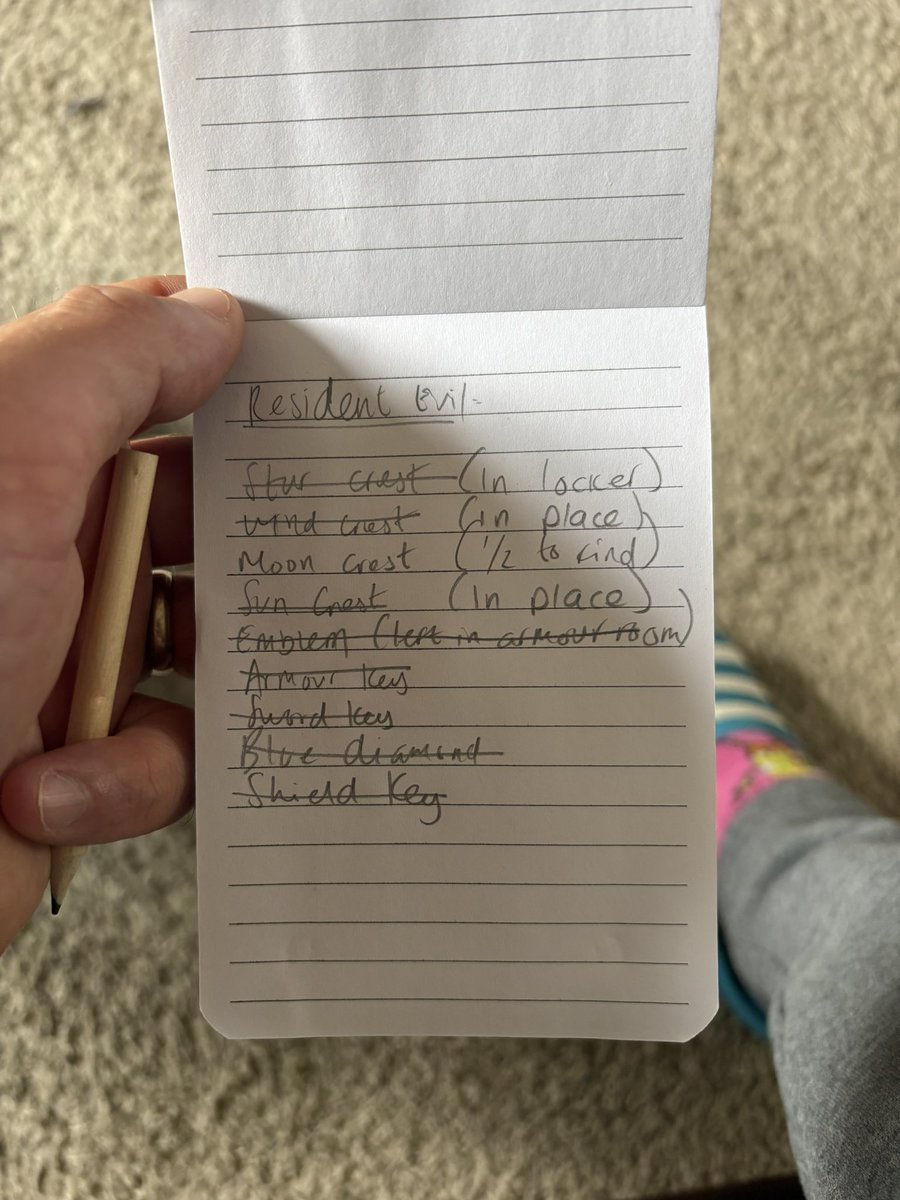 Resident Evil-
Star crest (In locker)
Wind crest (in place)
Moon crest (1/2 to find)
Sun Crest (In place)
Emblem (left in armour room)
Armour Key
Sword key
Blue diamond
Shield Key